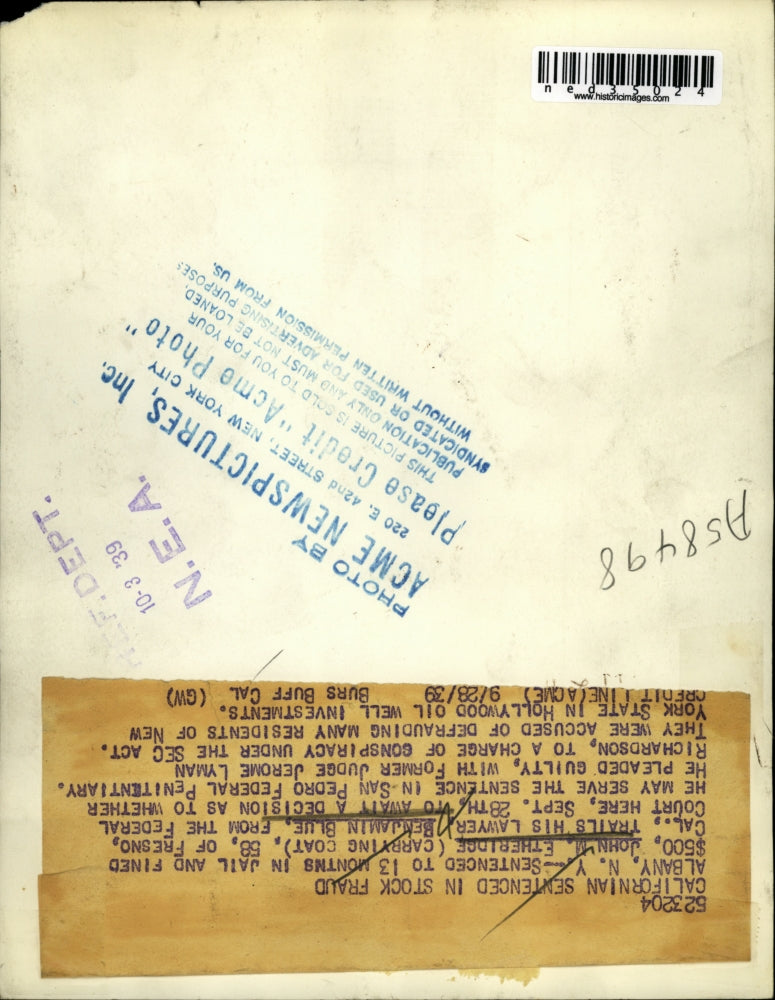 ned35024
www.historicimages.com
PHOTO BY
ACME NEWSPICTURES, Inc.
220 E. 42nd STREET, NEW YORK CITY
Please Credit "Acme Photo"
THIS PICTURE IS SOLD TO YOU FOR YOUR
PUBLICATION ONLY AND MUST NOT BE LOANED,
SYNDICATED OR USED FOR ADVERTISING PURPOSES
WITHOUT WRITTEN PERMISSION FROM US.
REF. DEPT.
10-3-'39
N.E.A.
A58498
523204
CALIFORNIAN SENTENCED IN STOCK FRAUD
ALBANY, N. Y.--SENTENCED TO 13 MONTHS IN JAIL AND FINED
$500, JOHN M. ETHERIDGE (CARRYING COAT), 58, OF FRESNO,
CAL., TRAILS HIS LAWYER, BENJAMIN BLUE, FROM THE FEDERAL
COURT HERE, SEPT. 28TH, TO AWAIT A DECISION AS TO WHETHER
HE MAY SERVE THE SENTENCE IN SAN PEDRO FEDERAL PENITENTIARY.
HE PLEADED GUILTY, WITH FORMER JUDGE JEROME LYMAN
RICHARDSON, TO A CHARGE OF CONSPIRACY UNDER THE SEC ACT.
THEY WERE ACCUSED OF DEFRAUDING MANY RESIDENTS OF NEW
YORK STATE IN HOLLYWOOD OIL WELL INVESTMENTS.
CREDIT LINE (ACME) 9/28/39 BURS BUFF CAL (GW)